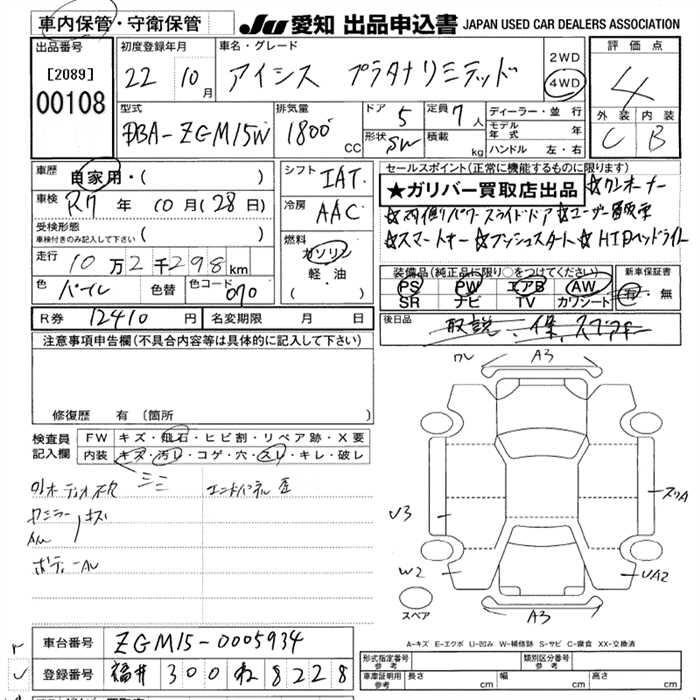 車内保管・守衛保管 JU 愛知 出品申込書 JAPAN USED CAR DEALERS ASSOCIATION
出品番号 [2089] 00108
初度登録年月 22 10月
車名・グレード アイシス プラタナリミテッド
2WD
4WD
評価点 4
外装 C 内装 B
型式 DBA-ZGM15W
排気量 1800 CC
ドア 5
形状 SW
定員 7人
積載 kg
ディーラー・並行
モデル年式 年
ハンドル 左・右
車歴 自家用・( )
車検 R7年 10月(28日)
受検形態
車検付きのみ記入して下さい ( )
走行 10万2千298km
色 パール 色替 色コード 070
シフト IAT
冷房 AAC
燃料 ガソリン
軽・油
( ・ )
セールスポイント(正常に機能するものに限ります)
★ガリバー買取店出品 ☆ワンオーナー
☆両側パワースライドドア ☆ユーザー買取車
☆スマートキー ☆プッシュスタート ☆HIDヘッドライト
装備品(純正品に限り○をつけてください) 新車保証書
PS PW エアB AW 有・無
SR ナビ TV カワシート
R券 12410円 名変期限 月 日
後日品 取説
注意事項申告欄(不具合内容等は具体的に記入して下さい)
修復歴 有 (箇所 )
検査員記入欄
FW キズ・飛石・ヒビ割・リペア跡・X要
内装 キズ・汚レ・コゲ・穴・スレ・キレ・破レ
シミ
オーディオ
エンドパネル
キズ
AW
ボディーAU
ワレ A3
U3
スリA
W2
UA2
A3
スペア
A-キズ E-エクボ U-凹み W-補修跡 S-サビ C-腐食 XX-交換済
車台番号 ZGM15-0005934
登録番号 福井 300 ね 8228
形式指定番号 参考 類別区分番号 参考
車庫証明用 参考 長さ cm 幅 cm 高さ cm